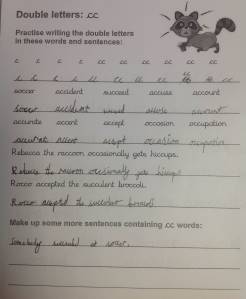 Double letters: .cc
Practise writing the double letters
in these words and sentences:
c c c c cc cc cc cc cc
soccer accident succeed accuse account
soccer accident succeed accuse account
accurate accent accept occasion occupation
accurate accent accept occasion occupation
Rebecca the raccoon occasionally gets hiccups.
Rebecca the raccoon occasionally gets hiccups
Rocco accepted the succulent broccoli.
Rocco accepted the succulent broccoli.
Make up some more sentences containing .cc words:
Somebody succeeded at soccer.